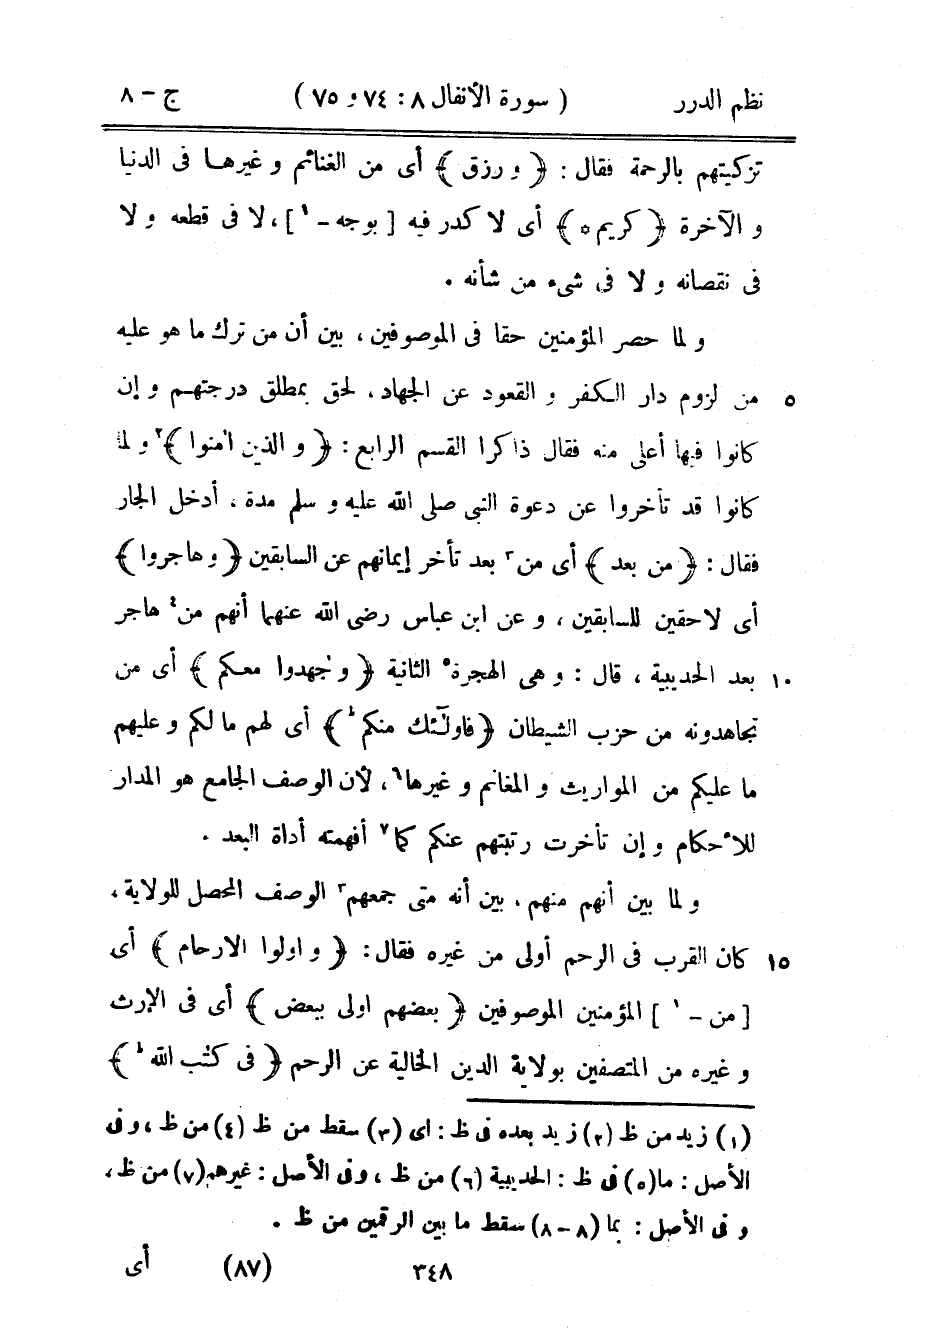 نظم الدرر ( سورة الأنفال ٨ : ٧٤ و ٧٥ ) ج – ٨
تزكيتهم بالرحمة فقال : ﴿ و رزق ﴾ أى من الغنائم و غيرها فى الدنيا
و الآخرة ﴿ كريم * ﴾ أى لا كدر فيه [ بوجه – ١ ] ، لا فى قطعه و لا
فى نقصانه و لا فى شىء من شأنه .
و لما حصر المؤمنين حقا فى الموصوفين ، بين أن من ترك ما هو عليه
٥ من لزوم دار الكفر و القعود عن الجهاد ، لحق بمطلق درجتهم و إن
كانوا فيها أعلى منه فقال ذاكرا القسم الرابع : ﴿ و الذين اٰمنوا ﴾٢ و لما
كانوا قد تأخروا عن دعوة النبى صلى الله عليه و سلم مدة ، أدخل الجار
فقال : ﴿ من بعد ﴾ أى من٣ بعد تأخر إيمانهم عن السابقين ﴿ و هاجروا ﴾
أى لاحقين للسابقين ، و عن ابن عباس رضى الله عنهما أنهم من٤ هاجر
١٠ بعد الحديبية ، قال : و هى الهجرة٥ الثانية ﴿ و جٰهدوا معكم ﴾ أى من
تجاهدونه من حزب الشيطان ﴿ فاولٰٓئك منكم ط ﴾ أى لهم ما لكم و عليهم
ما عليكم من المواريث و المغانم و غيرها٦ ، لأن الوصف الجامع هو المدار
للأحكام و إن تأخرت رتبتهم عنكم كما٧ أفهمته أداة البعد .
و لما بين أنهم منهم ، بين أنه متى جمعهم٣ الوصف المحصل للولاية ،
١٥ كان القرب فى الرحم أولى من غيره فقال : ﴿ و اولوا الارحام ﴾ أى
[ من – ١ ] المؤمنين الموصوفين ﴿ بعضهم اولى ببعض ﴾ أى فى الإرث
و غيره من المتصفين بولاية الدين الخالية عن الرحم ﴿ فى كتٰب الله ط ﴾
(١) زيد من ظ (٢) زيد بعده فى ظ : اى (٣) سقط من ظ (٤) من ظ ، و فى
الأصل : ما (٥) فى ظ : الحديبية (٦) من ظ ، و فى الأصل : غيرهم (٧) من ظ ،
و فى الأصل : بما (٨ – ٨) سقط ما بين الرقمين من ظ .
٣٤٨ (٨٧) أى